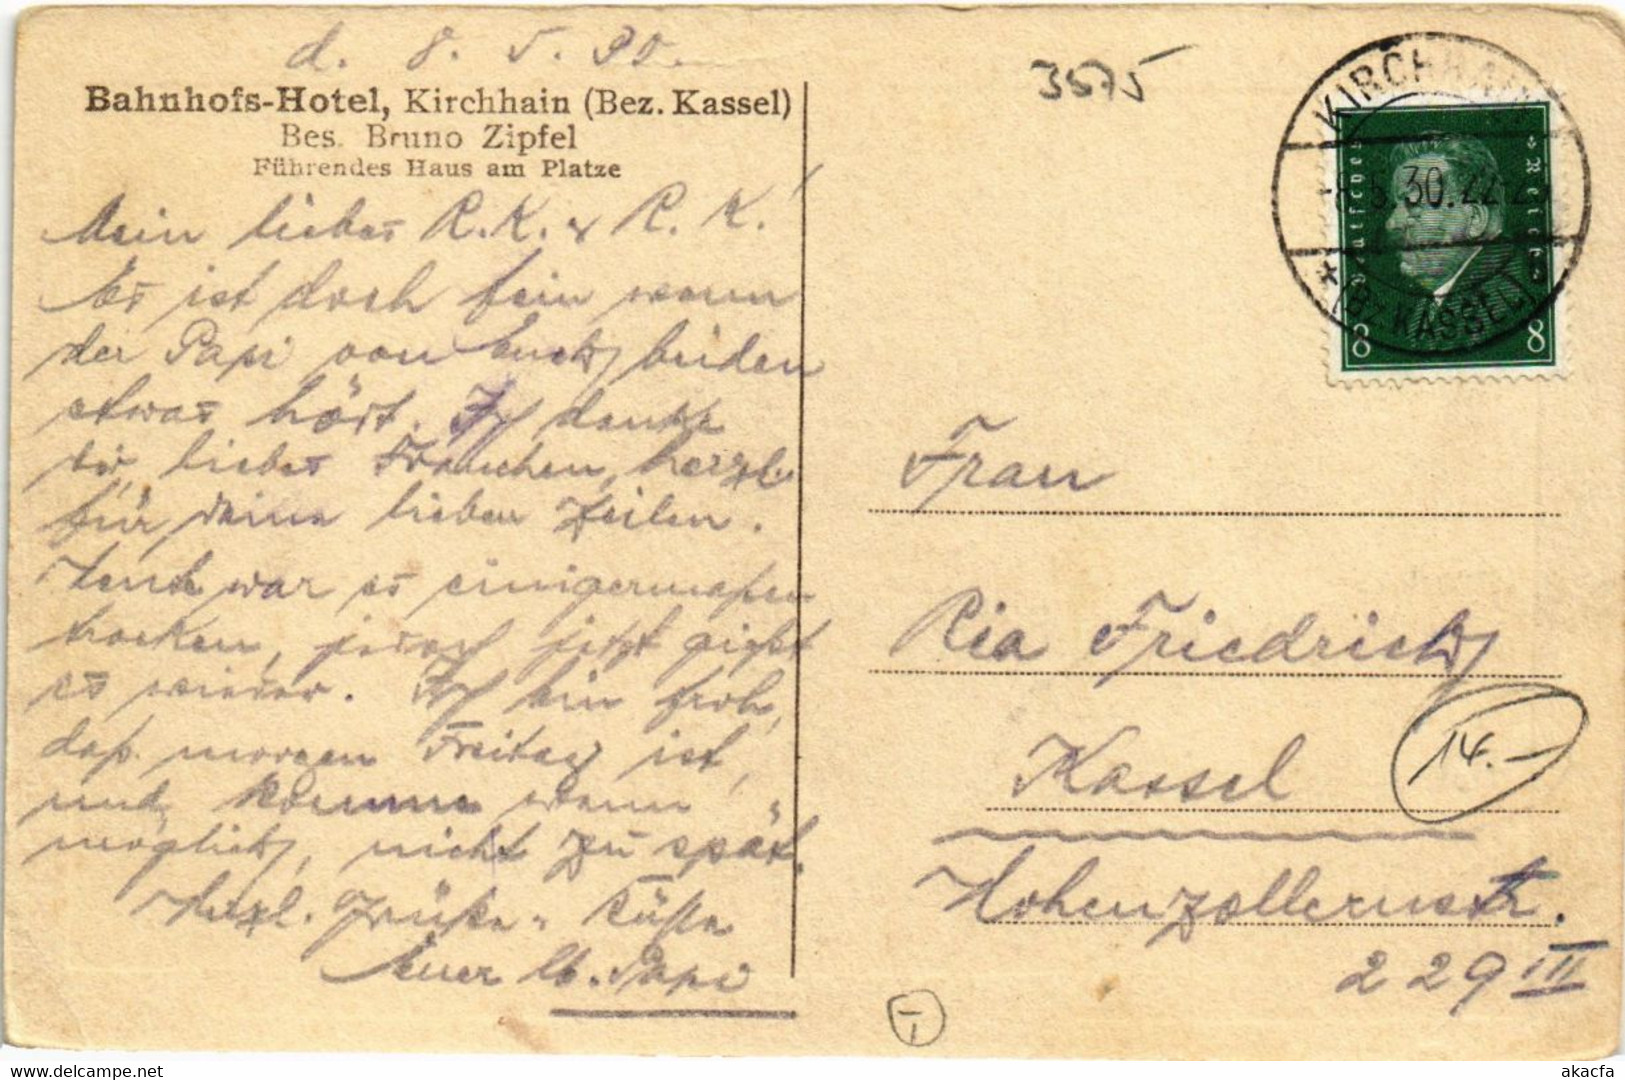 d. 8. 5. 30
Bahnhofs-Hotel, Kirchhain (Bez. Kassel)
Bes. Bruno Zipfel
Führendes Haus am Platze
Mein liebes R. K. & R. K.!
Es ist doch fein wenn
der Papi von Euch beiden
etwas hört. Ich danke
Dir, liebes Frauchen, herzl.
für Deine lieben Zeilen.
Heute war es einigermaßen
trocken, jedoch jetzt gießt
es wieder. Ich bin froh,
daß morgen Freitag ist,
und komme wenn
möglich, nicht zu spät.
Herzl. Grüße u. Küße
Euer lb. Papi
3575
KIRCHHAIN
5.30.22
* (Bz KASSEL)
Deutsches Reich
8 8
Frau
Ria Friedrich
Kassel
14.-
Hohenzollernstr.
229 III
akpool.co.uk
akacfa